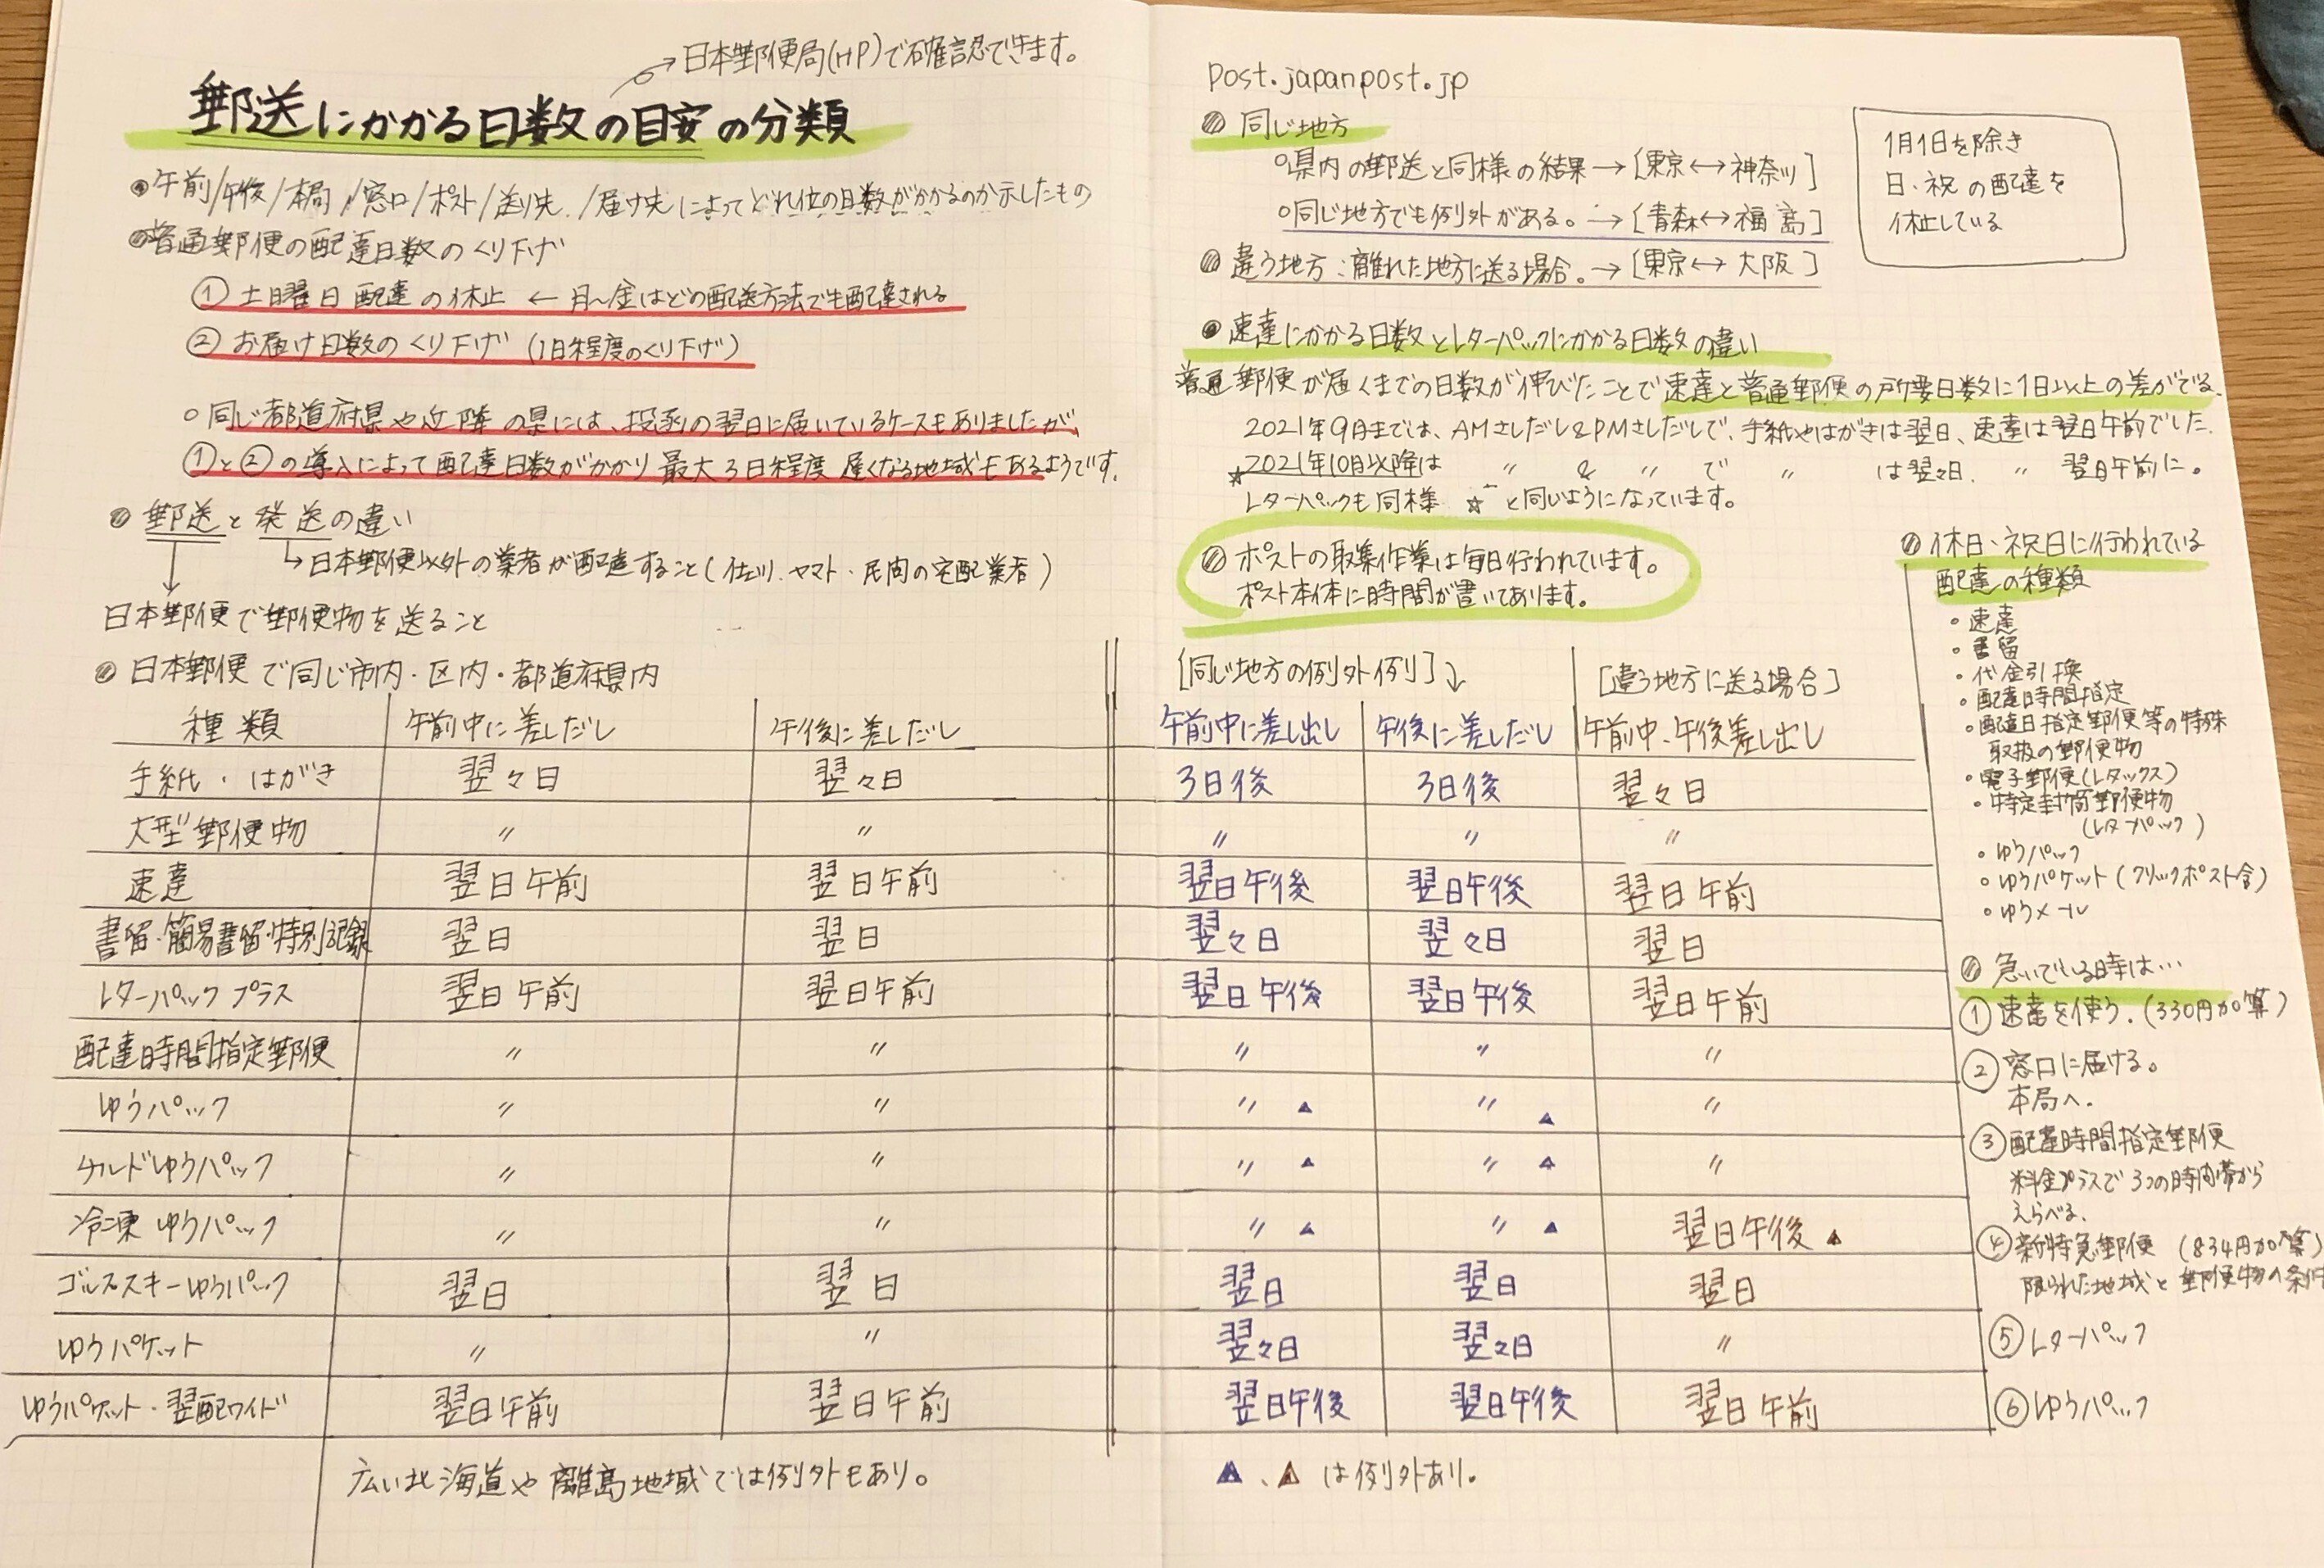 →日本郵便局(HP)で確認できます。
郵送にかかる日数の目安の分類
午前/午後/本局/窓口/ポスト/送り先/届け先によってどれ位の日数がかかるのか示したもの
普通郵便の配達日数のくり下げ
① 土曜日配達の休止 ← 月〜金はどの配送方法でも配達される
② お届け日数のくり下げ (1日程度のくり下げ)
○ 同じ都道府県や近隣の県には、投函の翌日に届いているケースもありましたが、
①と②の導入によって配達日数がかかり最大3日程度遅くなる地域もあるようです。
郵送と発送の違い
↳日本郵便以外の業者が配達すること(佐川・ヤマト・民間の宅配業者)
日本郵便で郵便物を送ること
日本郵便で同じ市内・区内・都道府県内
種類 午前中に差しだし 午後に差しだし
手紙・はがき 翌々日 翌々日
大型郵便物 〃 〃
速達 翌日午前 翌日午前
書留・簡易書留・特別記録 翌日 翌日
レターパックプラス 翌日午前 翌日午前
配達時間指定郵便 〃 〃
ゆうパック 〃 〃
チルドゆうパック 〃 〃
冷凍ゆうパック 〃 〃
ゴルフスキーゆうパック 翌日 翌日
ゆうパケット 〃 〃
ゆうパケット・翌配ワイド 翌日午前 翌日午前
広い北海道や離島地域では例外もあり。
post.japanpost.jp
同じ地方
○県内の郵送と同様の結果→[東京↔神奈川]
○同じ地方でも例外がある。→[青森↔福島]
違う地方:離れた地方に送る場合。→[東京↔大阪]
1月1日を除き
日・祝の配達を
休止している
速達にかかる日数とレターパックにかかる日数の違い
普通郵便が届くまでの日数が伸びたことで速達と普通郵便の所要日数に1日以上の差がでる。
2021年9月までは、AMさしだし&PMさしだしで、手紙やはがきは翌日、速達は翌日午前でした。
☆2021年10月以降は 〃 & 〃 で 〃 は翌々日、〃 翌日午前に。
レターパックも同様 ☆ と同いようになっています。
ポストの取集作業は毎日行われています。
ポスト本体に時間が書いてあります。
[同じ地方の例外例]↓ [違う地方に送る場合]
午前中に差し出し 午後に差しだし 午前中、午後差し出し
3日後 3日後 翌々日
〃 〃 〃
翌日午後 翌日午後 翌日午前
翌々日 翌々日 翌日
翌日午後 翌日午後 翌日午前
〃 〃 〃
〃 ▲ 〃 ▲ 〃
〃 ▲ 〃 ▲ 〃
〃 ▲ 〃 ▲ 翌日午後 ▲
翌日 翌日 翌日
翌々日 翌々日 〃
翌日午後 翌日午後 翌日午前
▲、▲は例外あり。
休日・祝日に行われている
配達の種類
・速達
・書留
・代金引換
・配達時間指定
・配達日指定郵便等の特殊
取扱の郵便物
・電子郵便(レタックス)
・特定封筒郵便物
(レターパック)
・ゆうパック
・ゆうパケット(クリックポスト含)
・ゆうメール
急いでいる時は…
① 速達を使う。(330円加算)
② 窓口に届ける。
本局へ。
③ 配達時間指定郵便
料金プラスで3つの時間帯から
えらべる。
④ 新特急郵便 (834円加算)
限られた地域と郵便物の条件
⑤ レターパック
⑥ ゆうパック